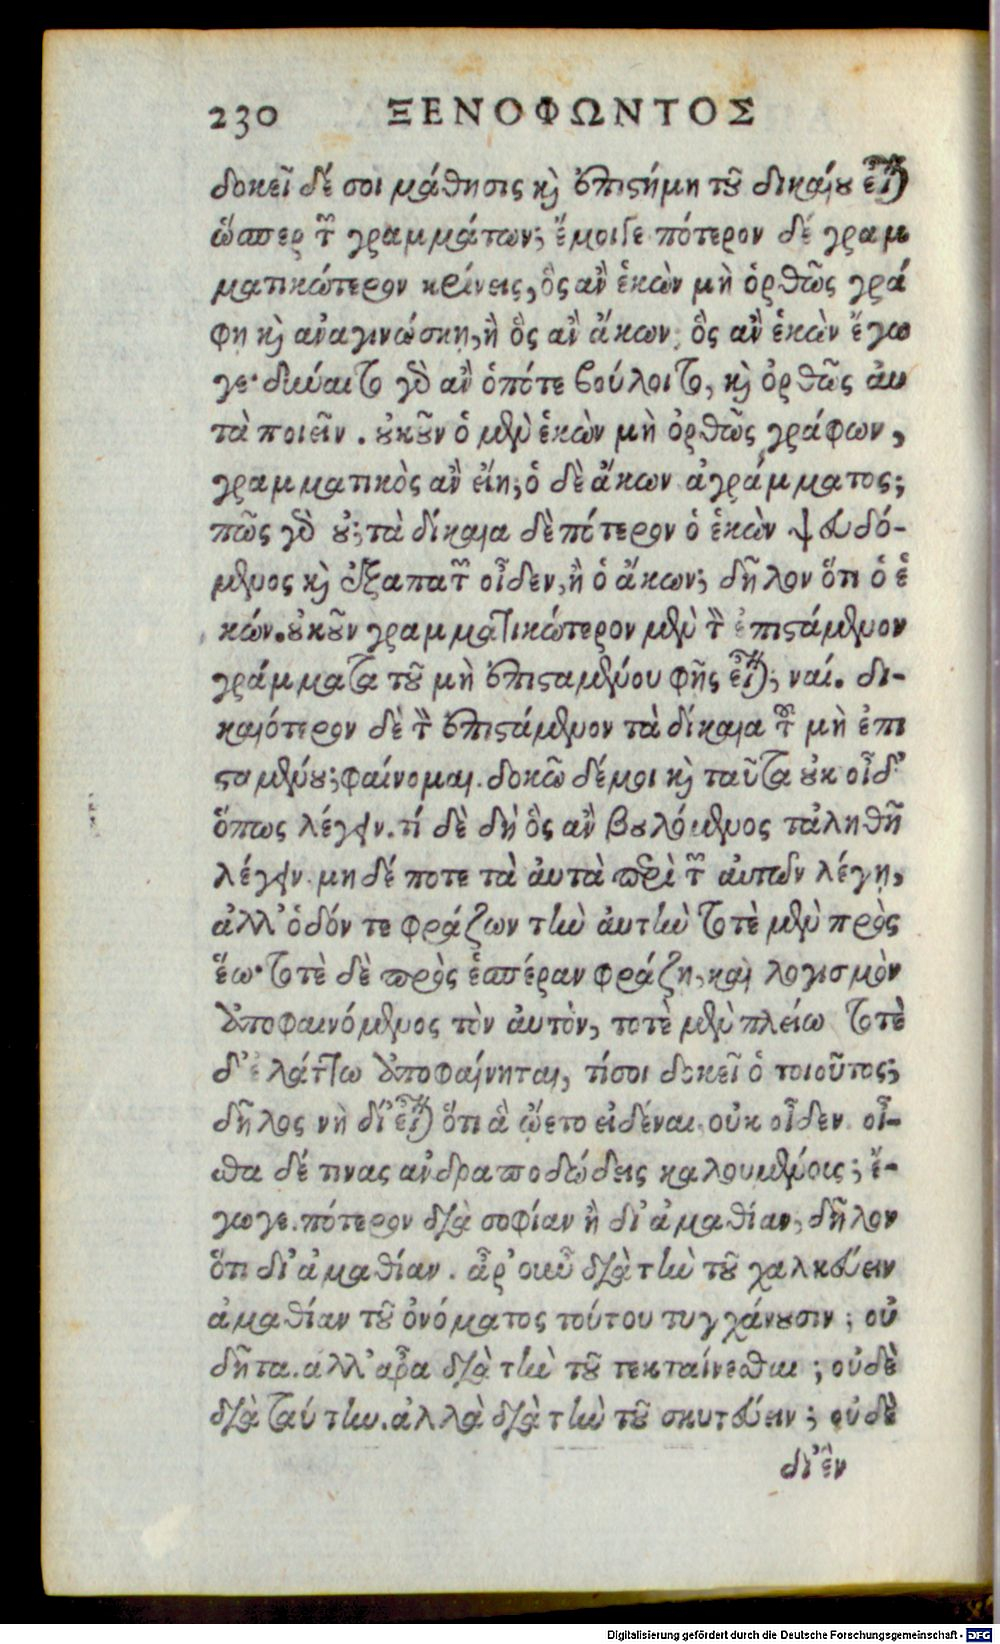 230 ΞΕΝΟΦΩΝΤΟΣ
δοκεῖ δέ σοι μάθησις καὶ ἐπιστήμη τοῦ δικαίου εἶναι
ὥσπερ τῶν γραμμάτων; ἔμοιγε. πότερον δὲ γραμ
ματικώτερον κρίνεις, ὃς ἂν ἑκὼν μὴ ὀρθῶς γρά
φῃ καὶ ἀναγινώσκῃ, ἢ ὃς ἂν ἄκων; ὃς ἂν ἑκὼν ἔγω
γε· δύναιτο γὰρ ἂν ὁπότε βούλοιτο, καὶ ὀρθῶς αὐ
τὰ ποιεῖν. οὐκοῦν ὁ μὲν ἑκὼν μὴ ὀρθῶς γράφων,
γραμματικὸς ἂν εἴη, ὁ δὲ ἄκων ἀγράμματος;
πῶς γὰρ οὔ; τὰ δίκαια δὲ πότερον ὁ ἑκὼν ψευδό-
μενος καὶ ἐξαπατῶν οἶδεν, ἢ ὁ ἄκων; δῆλον ὅτι ὁ ἑ
κών. οὐκοῦν γραμματικώτερον μὲν τὸν ἐπιστάμενον
γράμματα τοῦ μὴ ἐπισταμένου φῂς εἶναι; ναί. δι-
καιότερον δὲ τὸν ἐπιστάμενον τὰ δίκαια τοῦ μὴ ἐπι
σταμένου; φαίνομαι. δοκῶ δέ μοι καὶ ταῦτα οὐκ οἶδ'
ὅπως λέγειν. τί δὲ δὴ ὃς ἂν βουλόμενος τἀληθῆ
λέγειν μηδέποτε τὰ αὐτὰ περὶ τῶν αὐτῶν λέγῃ,
ἀλλ' ὁδόν τε φράζων τὴν αὐτὴν τοτὲ μὲν πρὸς
ἕω· τοτὲ δὲ πρὸς ἑσπέραν φράζῃ, καὶ λογισμὸν
ἀποφαινόμενος τὸν αὐτὸν, τοτὲ μὲν πλείω τοτὲ
δ' ἐλάττω ἀποφαίνηται, τί σοι δοκεῖ ὁ τοιοῦτος;
δῆλος νὴ δί' εἶναι ὅτι ἃ ᾤετο εἰδέναι, οὐκ οἶδεν. οἶ-
σθα δέ τινας ἀνδραποδώδεις καλουμένους; ἔ-
γωγε. πότερον διὰ σοφίαν ἢ δι' ἀμαθίαν, δῆλον
ὅτι δι' ἀμαθίαν. ἆρ' οὖν διὰ τὴν τοῦ χαλκεύειν
ἀμαθίαν τοῦ ὀνόματος τούτου τυγχάνουσιν; οὐ
δῆτα. ἀλλ' ἆρα διὰ τὴν τοῦ τεκταίνεσθαι; οὐδὲ
διὰ ταύτην. ἀλλὰ διὰ τὴν τοῦ σκυτεύειν; οὐδὲ
δι' ἓν
Digitalisierung gefördert durch die Deutsche Forschungsgemeinschaft - DFG